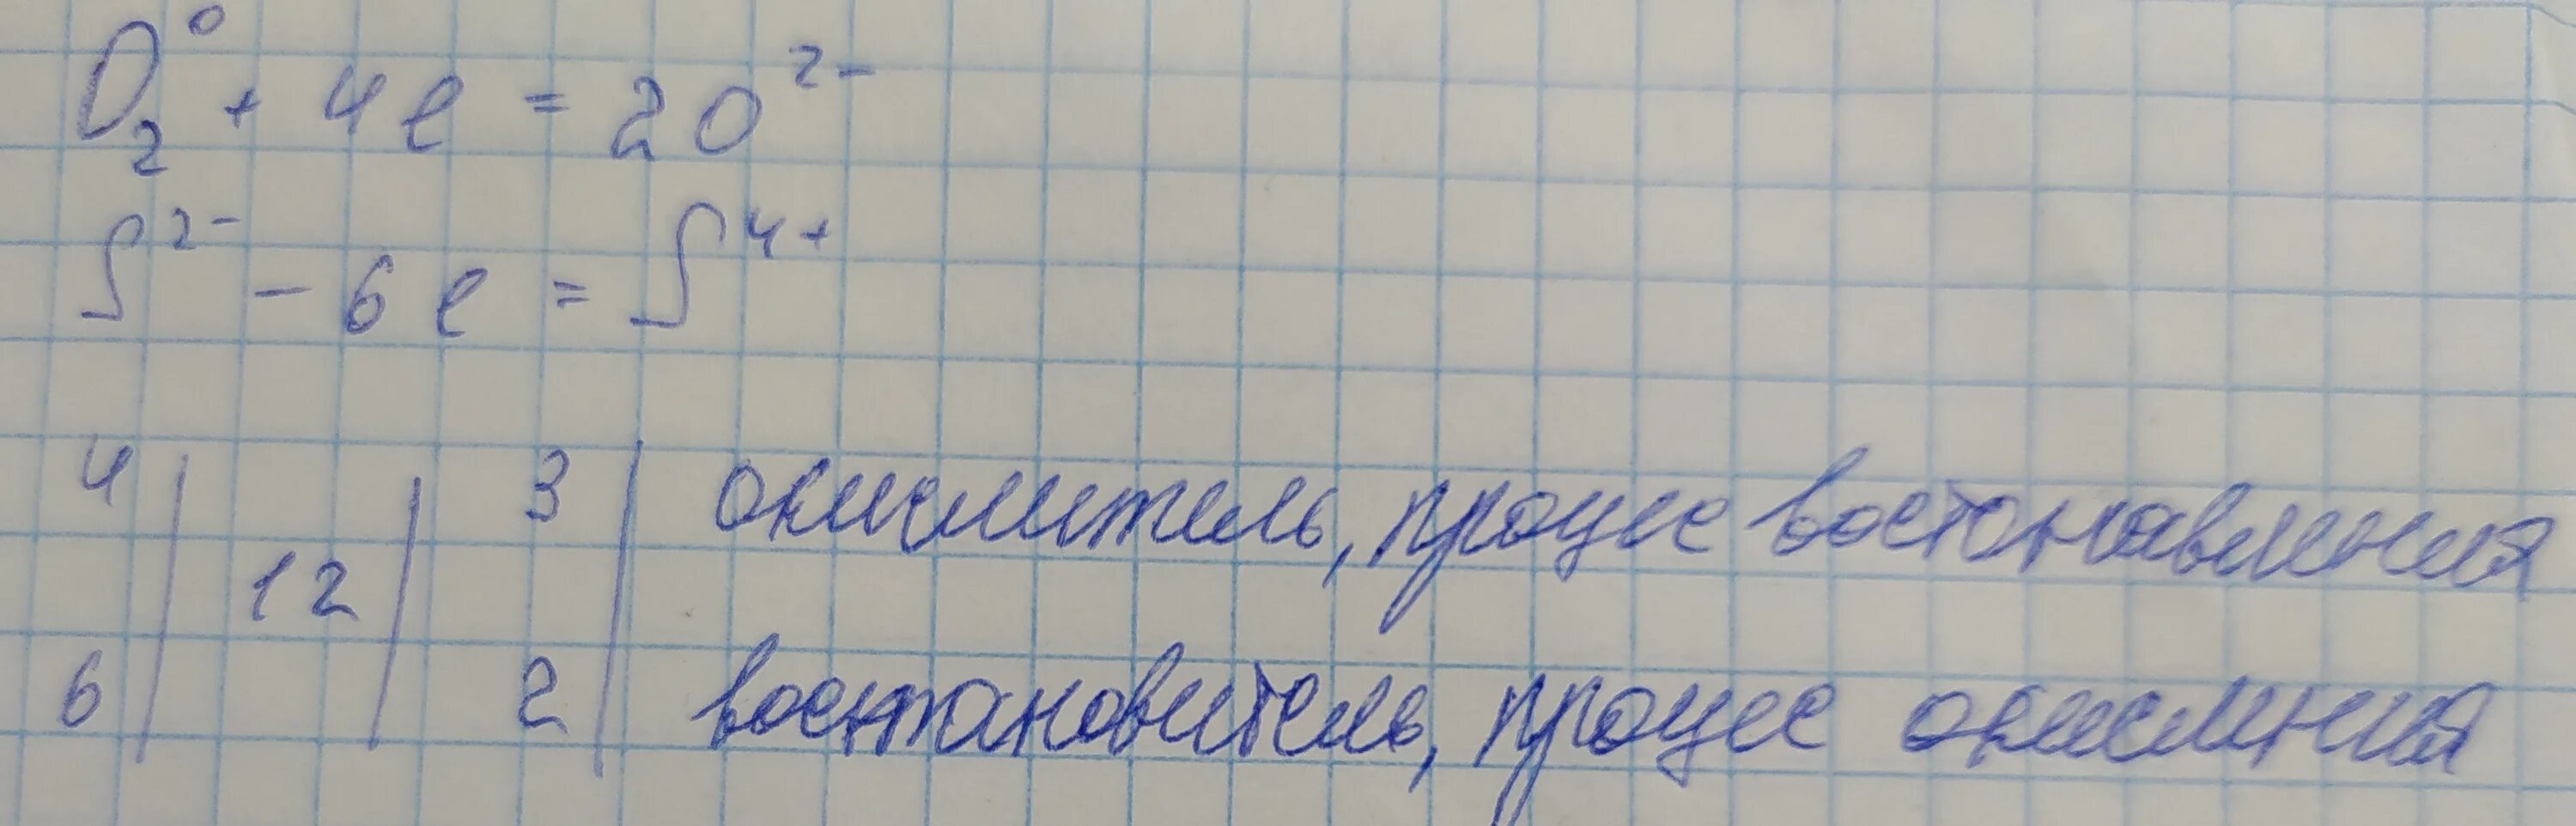 O₂⁰ + 4e = 2O²⁻
S²⁻ - 6e = S⁴⁺
4 | | 3 | окислитель, процес востонавления
12
6 | | 2 | востановитель, процес окисления